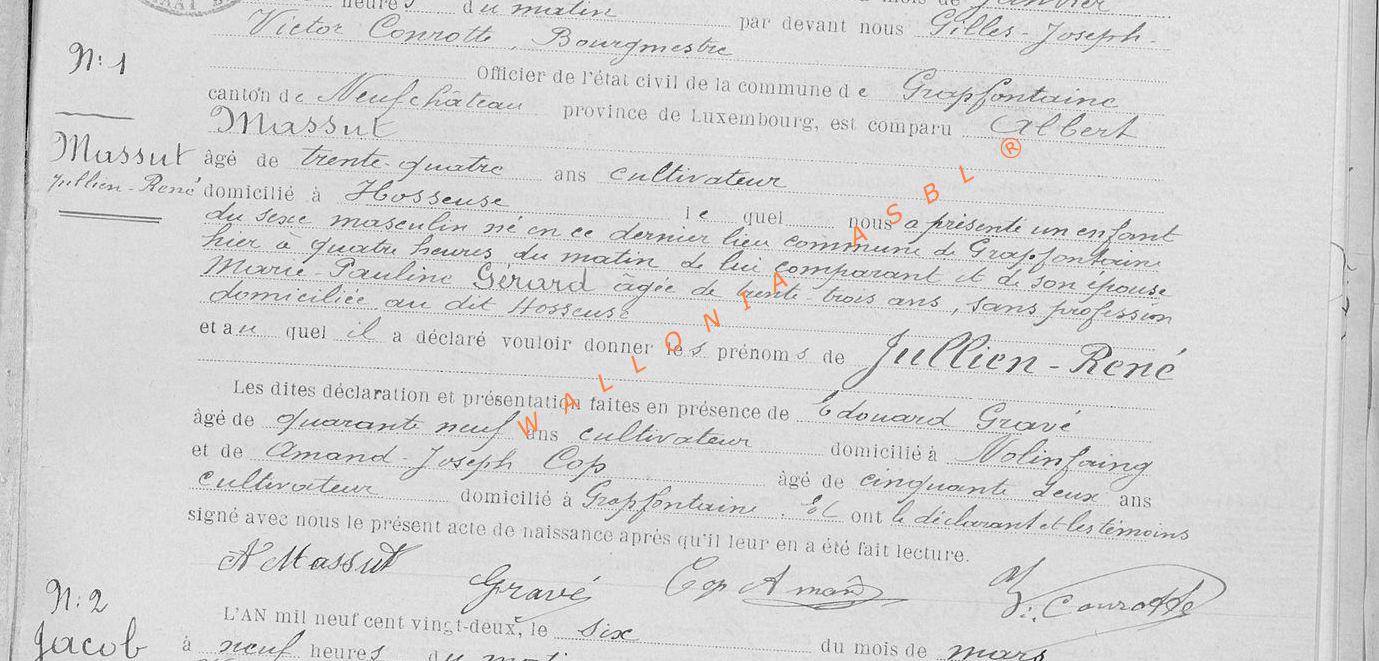 heures du matin mois de janvier
par devant nous Gilles-Joseph-
Victor Conrotte, Bourgmestre
N: 1
Officier de l'état civil de la commune de Grapfontaine
canton de Neufchâteau province de Luxembourg, est comparu Albert
Massut
Massut
Jullien-René
âgé de trente-quatre ans cultivateur
domicilié à Hosseuse le quel nous a présenté un enfant
du sexe masculin né en ce dernier lieu commune de Grapfontaine
hier à quatre heures du matin de lui comparant et de son épouse
Marie-Pauline Gérard âgée de trente-trois ans, sans profession
domiciliée au dit Hosseuse
et au quel il a déclaré vouloir donner les prénoms de Jullien-René
Les dites déclaration et présentation faites en présence de Edouard Gravé
âgé de quarante neuf ans cultivateur domicilié à Nolinfaing
et de Amand-Joseph Cop âgé de cinquante deux ans
cultivateur domicilié à Grapfontaine. Et ont le déclarant et les témoins
signé avec nous le présent acte de naissance après qu'il leur en a été fait lecture.
A Massut Gravé Cop Amand V. Conrotte
N: 2
Jacob
L'AN mil neuf cent vingt-deux, le six du mois de mars
à neuf heures du mati
WALLONIA ASBL ®